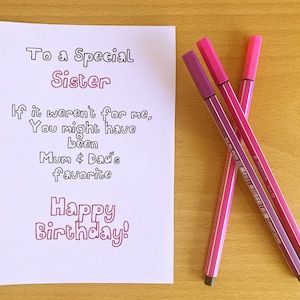 To a Special
Sister
If it weren't for me,
You might have
been
Mum & Dad's
favorite
Happy
Birthday!